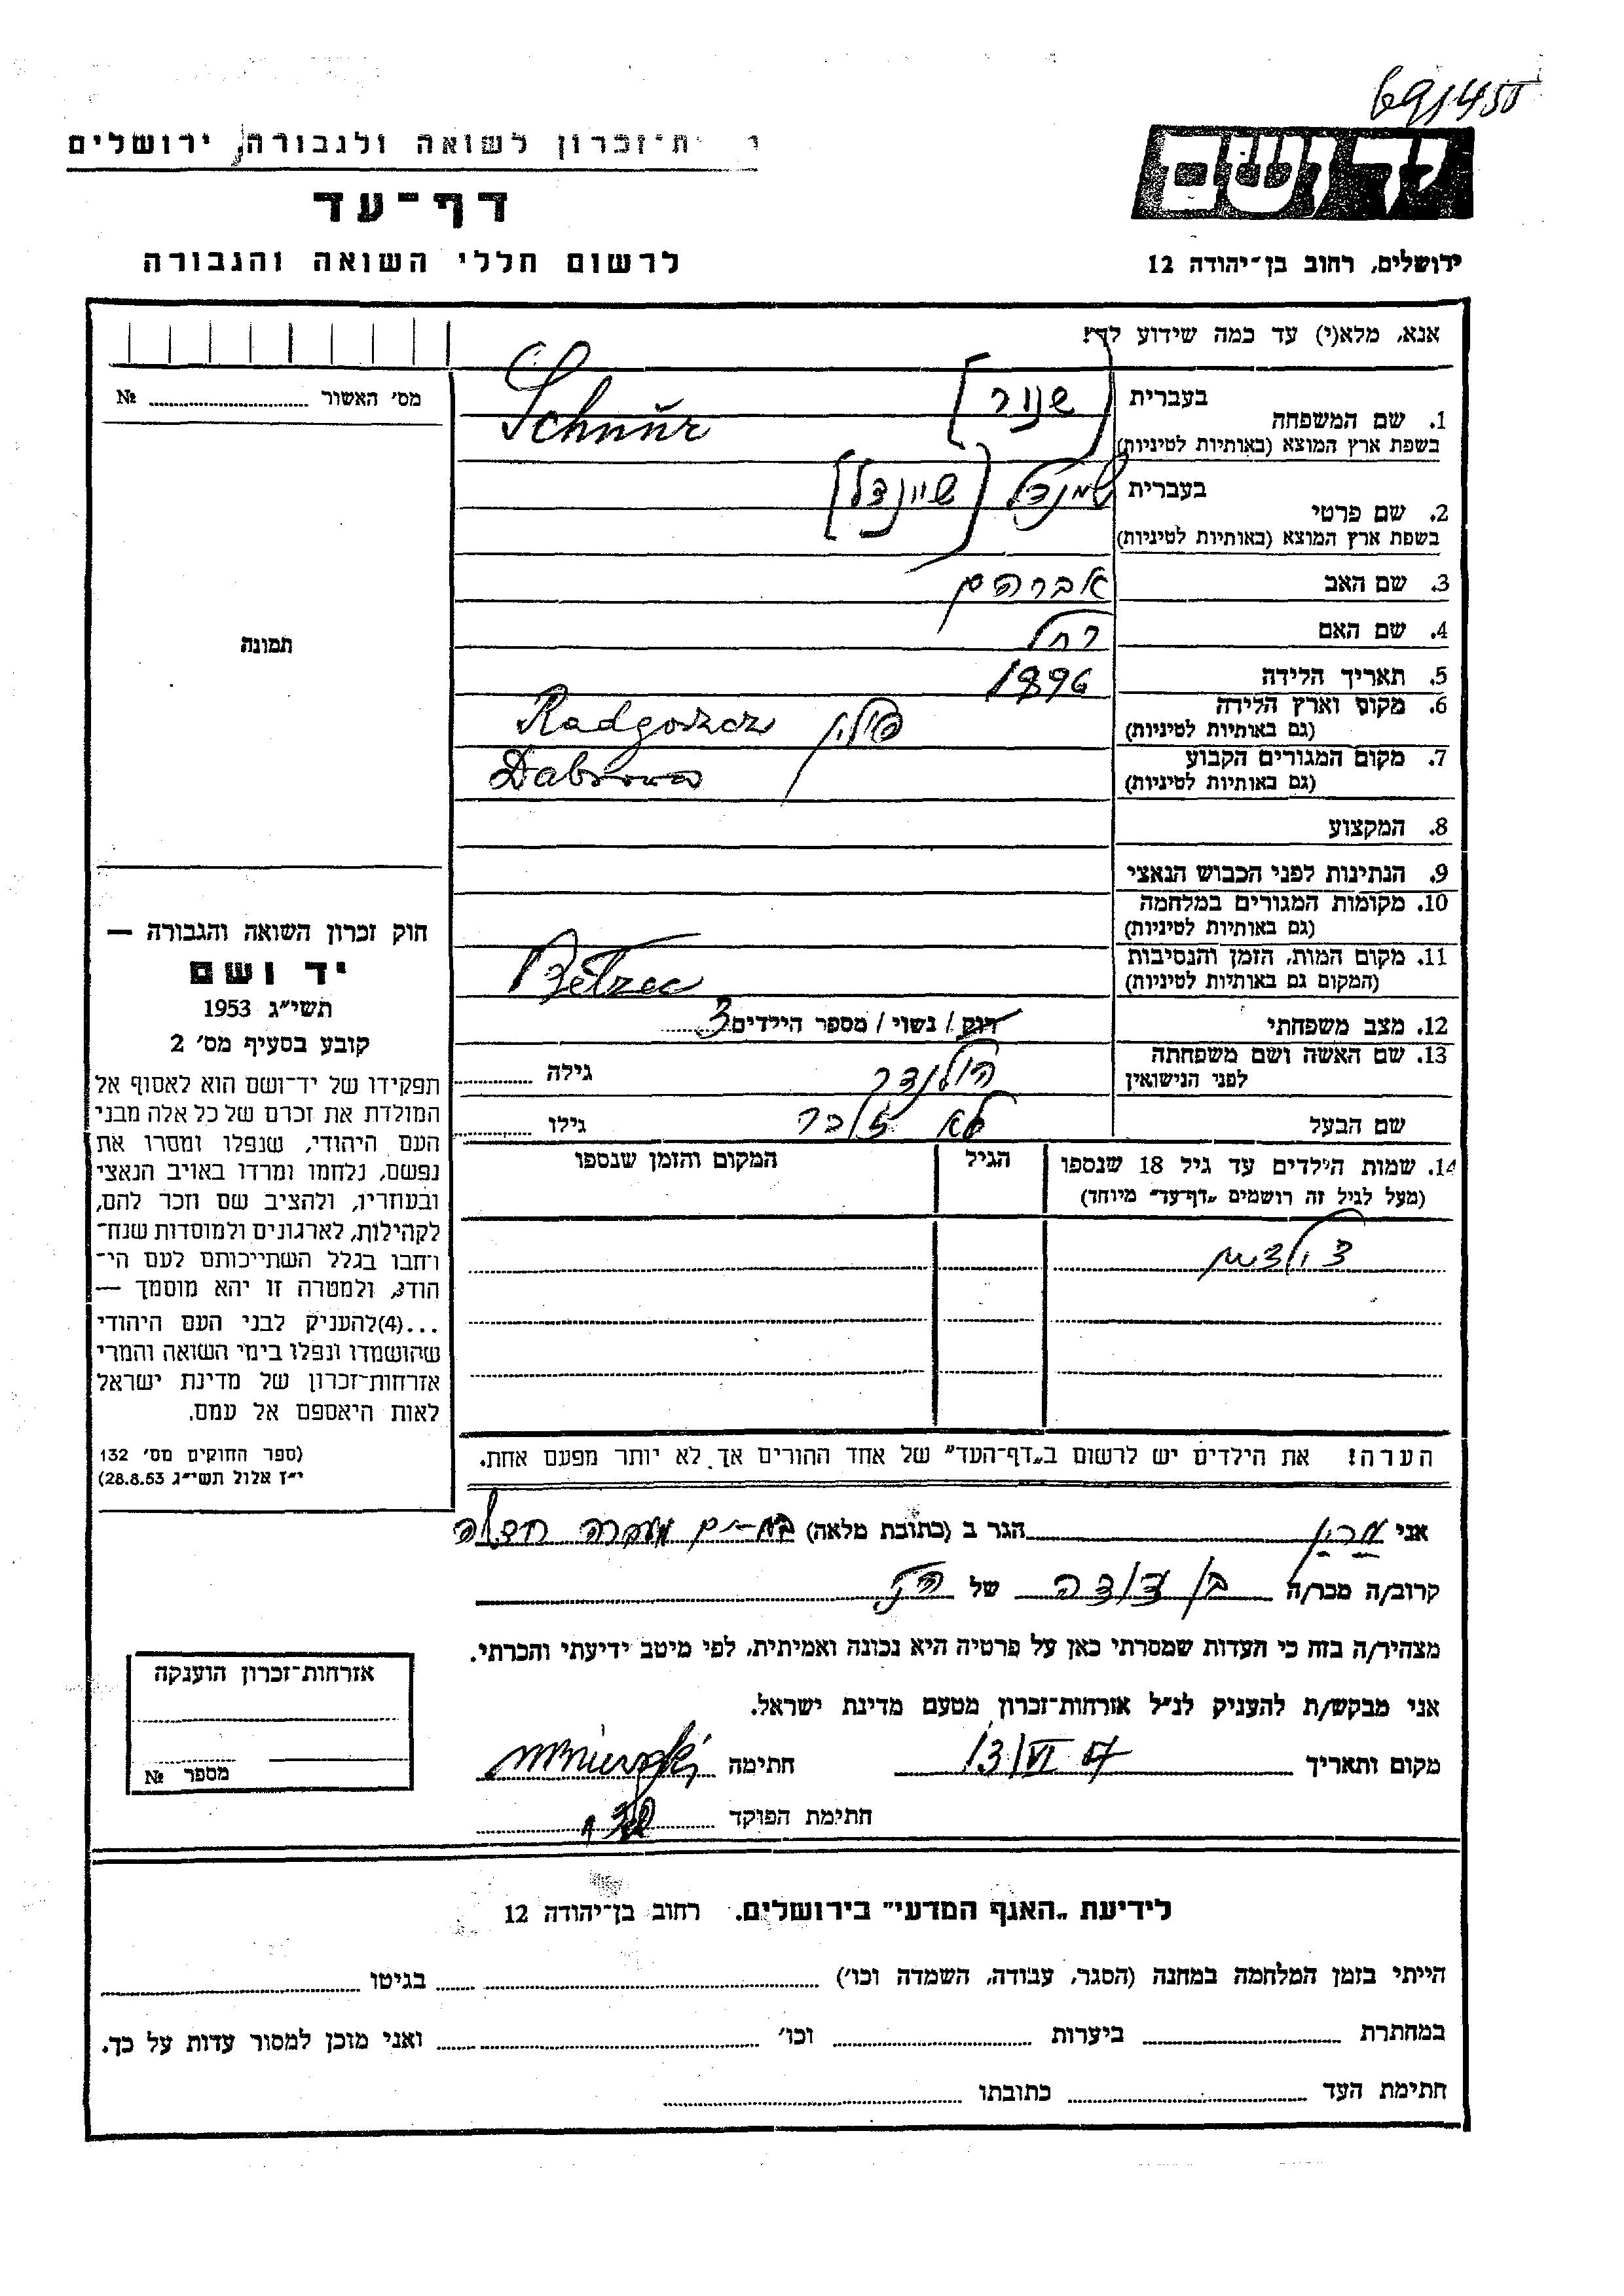 69/450
ת־זכרון לשואה ולגבורה, ירושלים
יד ושם
דף־עד
לרשום חללי השואה והגבורה
ירושלים, רחוב בן־יהודה 12
אנא, מלא(י) עד כמה שידוע לך!
מס׳ האשור № 
1. שם המשפחה
בעברית [שנור]
בשפת ארץ המוצא (באותיות לטיניות) Schnür
2. שם פרטי
בעברית [שיינדל]
בשפת ארץ המוצא (באותיות לטיניות)
3. שם האב אברהם
4. שם האם רחל
5. תאריך הלידה 1896
6. מקום וארץ הלידה
(גם באותיות לטיניות) פולין Radgoszcz
7. מקום המגורים הקבוע
(גם באותיות לטיניות) Dabrowa
8. המקצוע
9. הנתינות לפני הכבוש הנאצי
10. מקומות המגורים במלחמה
(גם באותיות לטיניות)
11. מקום המות, הזמן והנסיבות
(המקום גם באותיות לטיניות) Bełzec
12. מצב משפחתי רווק / נשוי / מספר הילדים 3
13. שם האשה ושם משפחתה
לפני הנישואין הולנדר גילה
שם הבעל לא זוכר גילו
14. שמות הילדים עד גיל 18 שנספו
(מעל לגיל זה רושמים „דף־עד״ מיוחד)
הגיל
המקום והזמן שנספו
הערה! את הילדים יש לרשום ב„דף־העד״ של אחד ההורים אך לא יותר מפעם אחת.
תמונה
חוק זכרון השואה והגבורה —
יד ושם
תשי״ג 1953
קובע בסעיף מס׳ 2
תפקידו של יד־ושם הוא לאסוף אל
המולדת את זכרם של כל אלה מבני
העם היהודי, שנפלו ומסרו את
נפשם, נלחמו ומרדו באויב הנאצי
ובעוזריו, ולהציב שם וזכר להם,
לקהילות, לארגונים ולמוסדות שנח־
רחבו בגלל השתייכותם לעם הי־
הודי, ולמטרה זו יהא מוסמך —
...(4)להעניק לבני העם היהודי
שהושמדו ונפלו בימי השואה והמרי
אזרחות־זכרון של מדינת ישראל
לאות היאספם אל עמם.
(ספר החוקים מס׳ 132
י״ז אלול תשי״ג 28.8.53)
אני הגר ב (כתובת מלאה)
קרוב/ה מכר/ה בן דודה של
מצהיר/ה בזה כי העדות שמסרתי כאן על פרטיה היא נכונה ואמיתית, לפי מיטב ידיעתי והכרתי.
אני מבקש/ת להעניק לנ״ל אזרחות־זכרון מטעם מדינת ישראל.
מקום ותאריך 13/VI 57 חתימה
חתימת הפוקד
אזרחות־זכרון הוענקה
מספר №
לידיעת „האגף המדעי״ בירושלים. רחוב בן־יהודה 12
הייתי בזמן המלחמה במחנה (הסגר, עבודה, השמדה וכו׳) בגיטו
במחתרת ביערות וכו׳ ואני מוכן למסור עדות על כך.
חתימת העד כתובתו